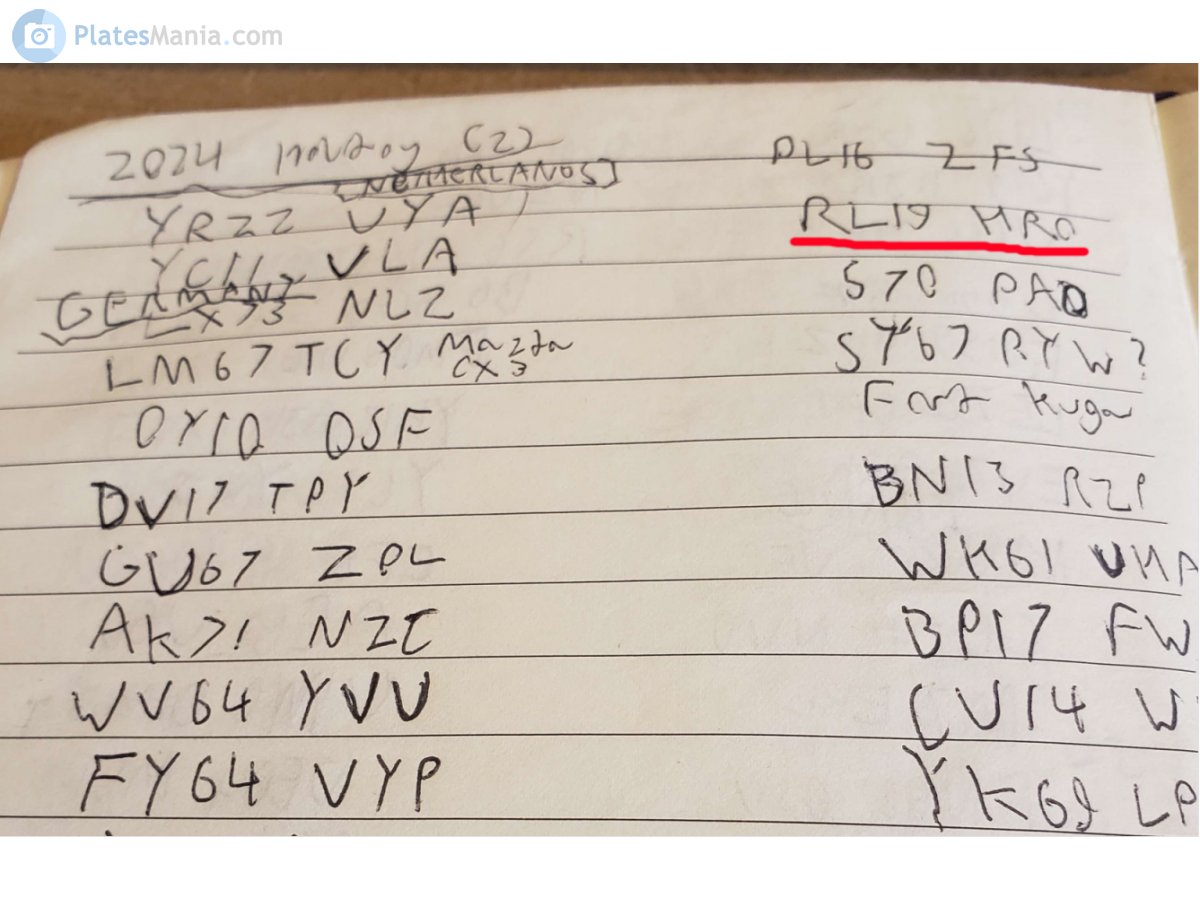 PlatesMania.com
2024 Holiday (2)
[NETHERLANDS]
YR22 UYA
YC11 VLA
GERMANY
LX73 NLZ
LM67 TCY Mazda
CX3
OY10 OSF
DV17 TPY
GU67 ZPL
AK71 NZC
WV64 YVU
FY64 VYP
PL16 ZFS
RL19 HRO
S70 PAO
SY67 RYW?
Ford Kuga
BN13 RZP
WK61 UHA
BP17 FW
CU14 W
YK69 LP